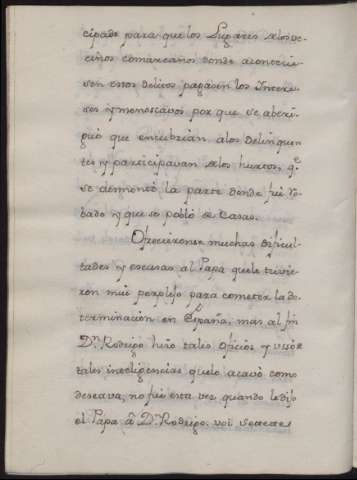 cipado para que los Lugares a los ve-
cinos comarcanos donde acontecie-
sen estos delitos pagasen los Interes-
ses y menoscavos por que se aberi-
guó que encubrian a los delinquen
tes y participavan de los hurtos, q.e
se desmontó la parte donde fué Ro-
bado y que se pobló de Casas.
Ofrecieronse muchas dificul-
tades y escusas al Papa que le tuvie-
ron mui perplejo para cometer la de-
terminacion en España, mas al fin
D.n Rodrigo hizo tales oficios y usó
tales inteligencias que lo acavó como
deseava; no fué esta vez quando le dijo
el Papa â D.n Rodrigo,